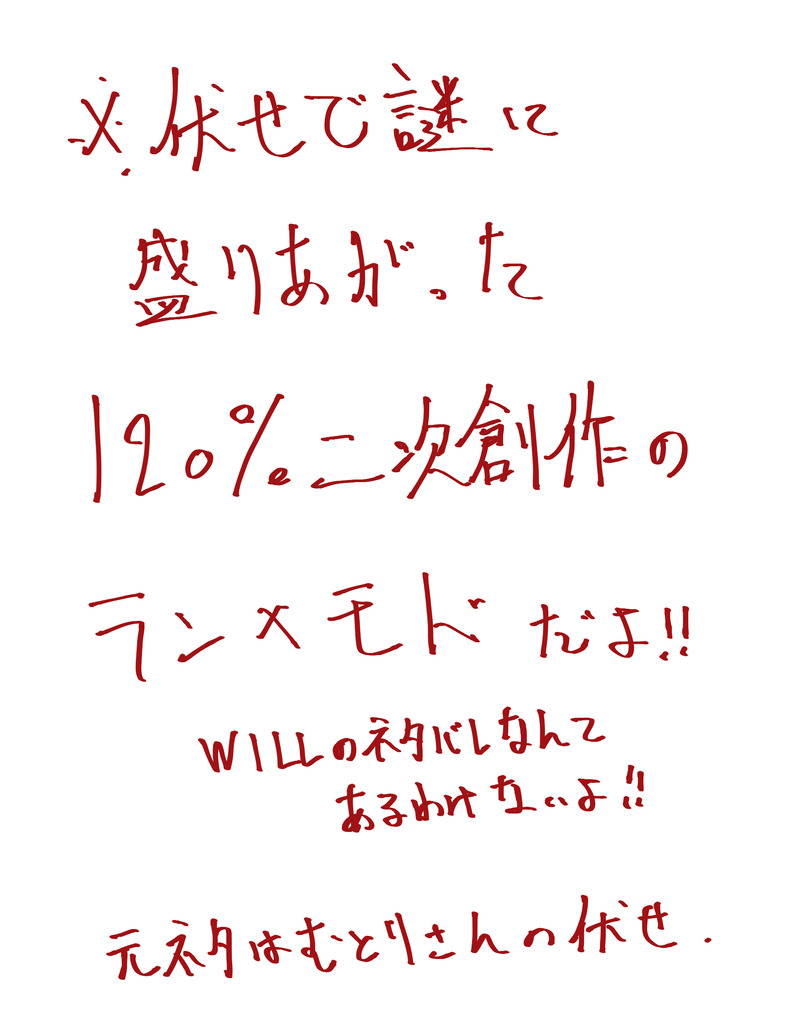 ※伏せで謎に
盛りあがった
120%二次創作の
ラン×モドだよ!!
WILLのネタバレなんて
あるわけないよ!!
元ネタはむとりさんの伏せ.